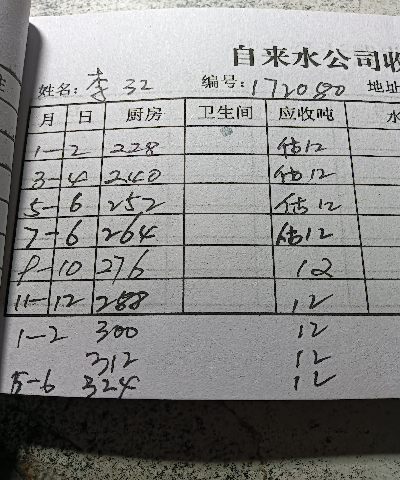 自来水公司收
姓名: 李 32 编号: 1720580 地址
月 日 厨房 卫生间 应收吨 水
1-2 228 估12
3-4 240 估12
5-6 252 估12
7-6 264 估12
9-10 276 12
11-12 288 12
1-2 300 12
312 12
5-6 324 12